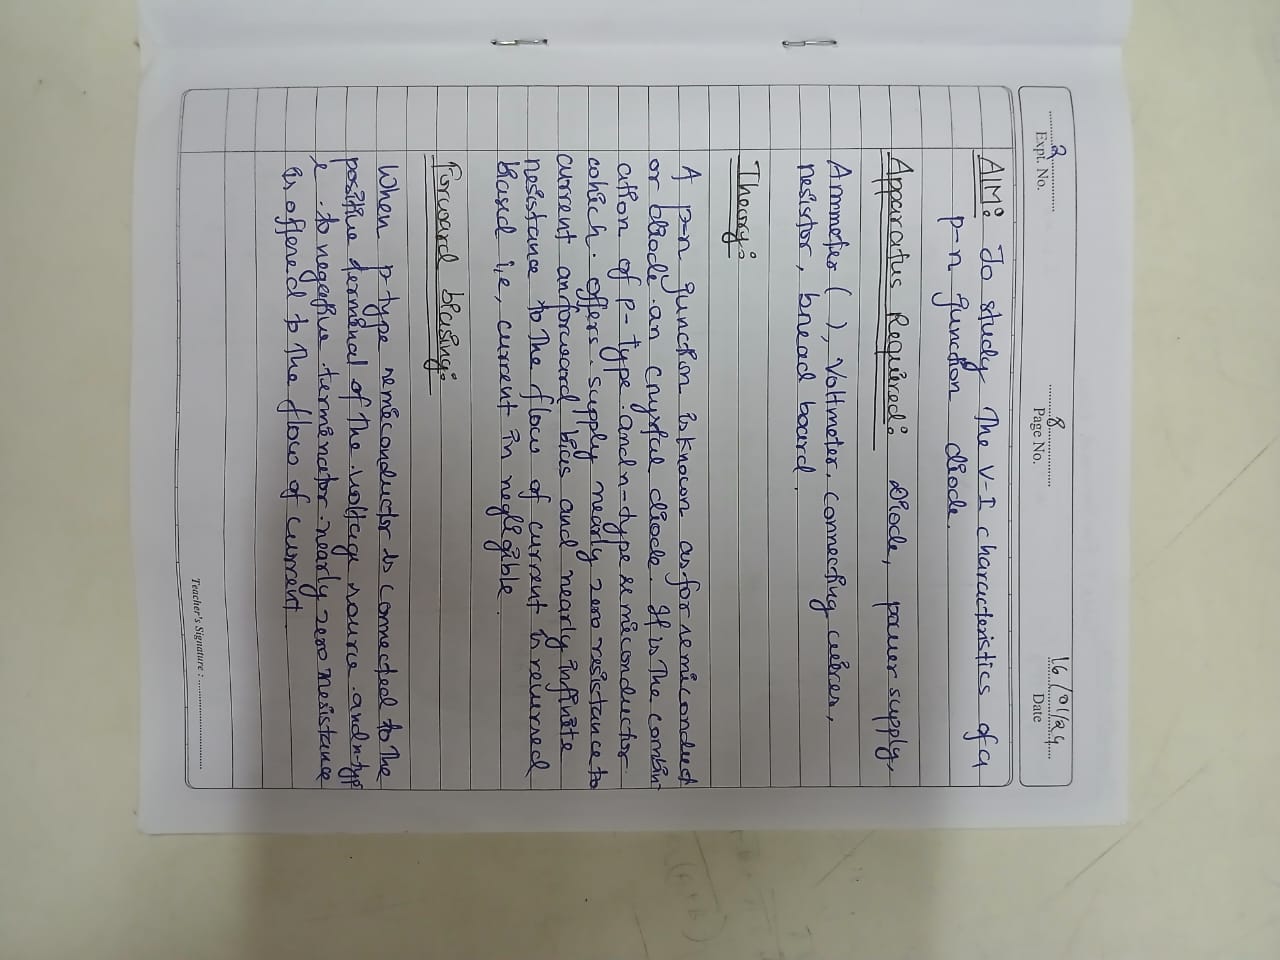 Expt. No. 2
Page No. 8
Date 16/01/24
AIM: To study The V-I characteristics of a
p-n junction diode.
Apparatus Required: Diode, power supply,
Ammeter ( ), Voltmeter, connecting wires,
resistor, bread board.
Theory:
A p-n junction is known as for semiconduct
or diode an crystal diode. It is The combin
ation of p-type and n-type semiconductor
which offers supply nearly zero resistance to
current an forward bias and nearly infinite
resistance to The flow of current is reversed
biased i,e, current in negligible.
Forward biasing:
When p type semiconductor is connected to The
positive terminal of The voltage source and n-typ
e to negative nearly zero resistance
is offered to The flow of current.
Teacher's Signature :